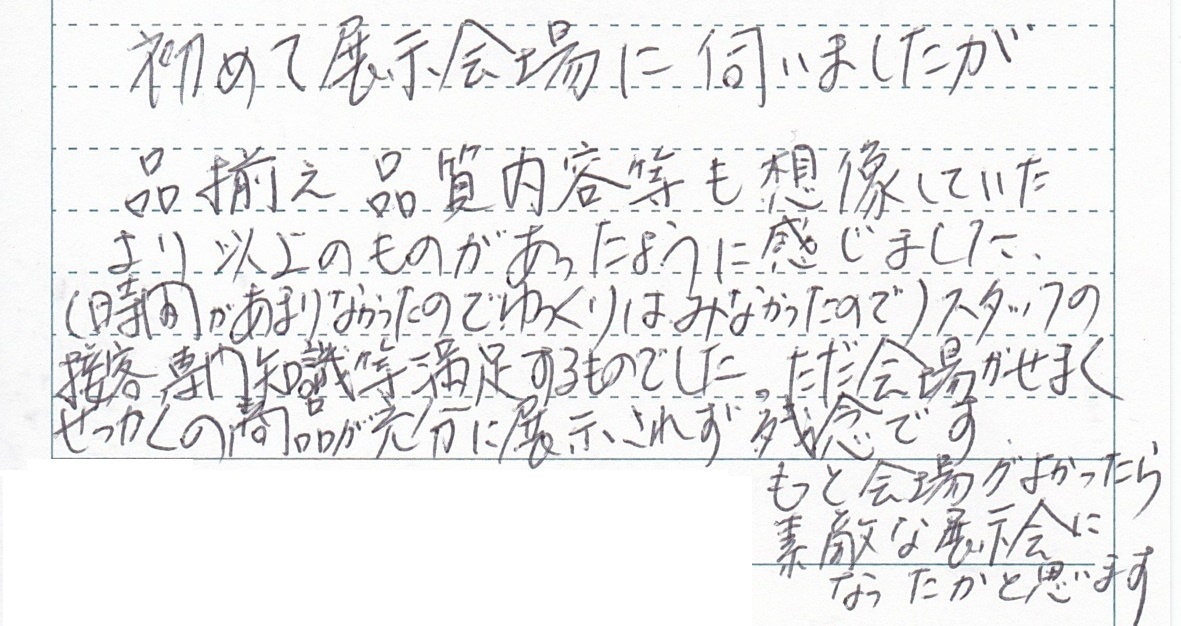 初めて展示会場に伺いましたが
品揃え 品質内容等も想像していた
より以上のものがあったように感じました、
(時間があまりなかったのでゆっくりはみなかったので)スタッフの
接客 専門知識等満足するものでした。ただ会場がせまく
せっかくの商品が充分に展示されず 残念です.
もっと会場がよかったら
素敵な展示会に
なったかと思います